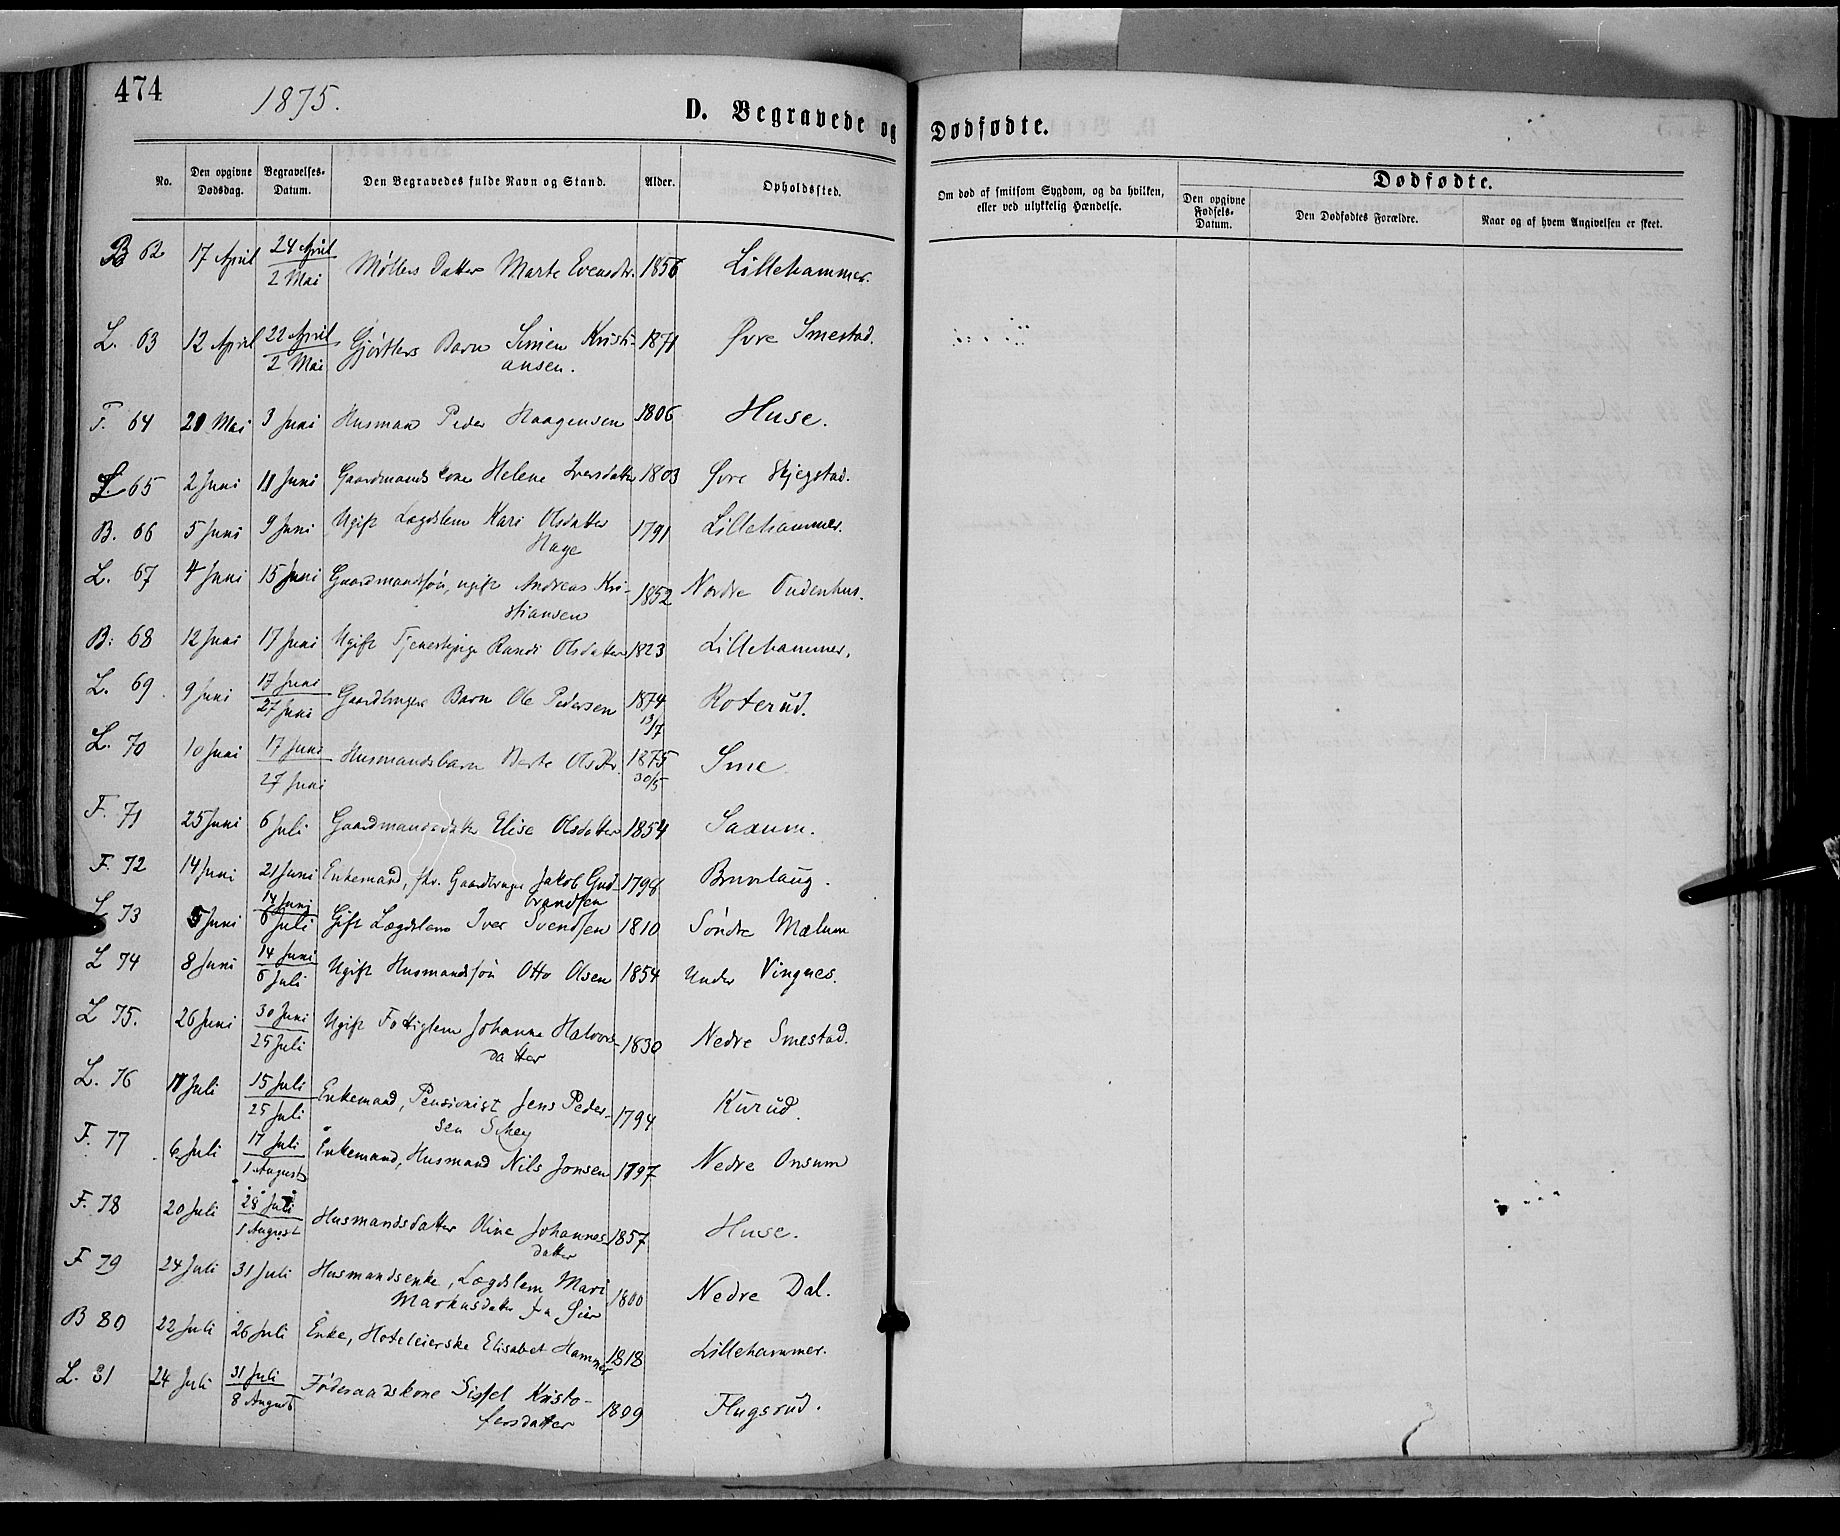 474
1875.
D. Begravede og Dødfødte.
No.
Den opgivne Dødsdag.
Begravelses-Datum.
Den Begravedes fulde Navn og Stand.
Alder.
Opholdssted.
Om død af smitsom Sygdom, og da hvilken, eller ved ulykkelig Hændelse.
Dødfødte.
Den opgivne Fødsels-Datum.
Den Dødfødtes Forældre.
Naar og af hvem Angivelsen er skeet.
B 62 17 April 24 April 2 Mai Møllers Datter Marte Evensdtr. 1856 Lillehammer.
L. 63 12 April 22 April 2 Mai Gjørtlers Barn Simen Kristi-
ansen. 1871 Øvre Smestad.
F. 64 20 Mai 3 Juni Husmand Peder Haagensen 1806 Huse.
L. 65 2 Juni 11 Juni Gaardmandskone Helene Iversdatter 1803 Øvre Skjegstad.
B. 66 5 Juni 9 Juni Ugift Lægdslem Kari Olsdatter
Hage 1791 Lillehammer.
L. 67 4 Juni 15 Juni Gaardmandssøn, ugift Andreas Kri-
stiansen 1852 Nordre Oudenhus.
B. 68 12 Juni 17 Juni Ugift Tjenestepige Randi Olsdatter 1823 Lillehammer.
L. 69. 9 Juni 17 Juni 27 Juni Gaardbrugers Barn Ole Pedersen 1874 13/7 Roterud.
L. 70 10 Juni 17 Juni 27 Juni Husmandsbarn Berte Olsdtr. 1875 30/5 Sme
F. 71 25 Juni 6 Juli Gaardmandsdatter Elise Olsdatter 1854 Saxum.
F. 72 14 Juni 21 Juni Enkemand, fhv. Gaardbruger Jakob Gud-
brandsen 1798 Brunlaug.
L 73 5 Juni 14 Juni 6 Juli Gift Lægdslem Iver Svendsen 1810 Søndre Mælum
L 74 8 Juni 14 Juni 6 Juli Ugift Husmandssøn Otto Olsen 1854 Under Vingnes.
L 75. 26 Juni 30 Juni 25 Juli Ugift Fattiglem Johanne Halvors-
datter 1830 Nedre Smestad.
L. 76 11 Juli 15 Juli 25 Juli Enkemand, Pensionist Jens Peder-
sen Skey 1794 Kurud.
F. 77 6 Juli 17 Juli 1 August Enkemand, Husmand Nils Jonsen 1797 Nedre Onsum
F. 78 20 Juli 28 Juli 1 August Husmandsdatter Oline Johannes-
datter 1857 Huse.
F 79 24 Juli 31 Juli Husmandsenke, Lægdslem Mari
Markusdatter fra Øier 1800 Nedre Dal.
B 80 22 Juli 26 Juli Enke, Hoteleierske Elisabet Hammer 1818 Lillehammer.
L. 81 24 Juli 31 Juli 8 August Føderaadskone Sissel Kristo-
fersdatter 1809 Flugsrud.